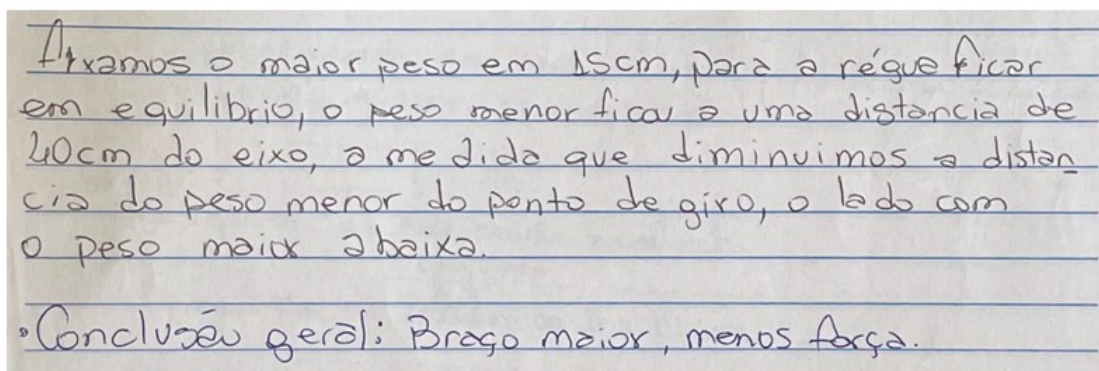 Fixamos o maior peso em 15cm, para a régua ficar
em equilibrio, o peso menor ficou a uma distância de
40cm do eixo, a medida que diminuimos a distân
cia do peso menor do ponto de giro, o lado com
o peso maior abaixa.
• Conclusão geral: Braço maior, menos força.